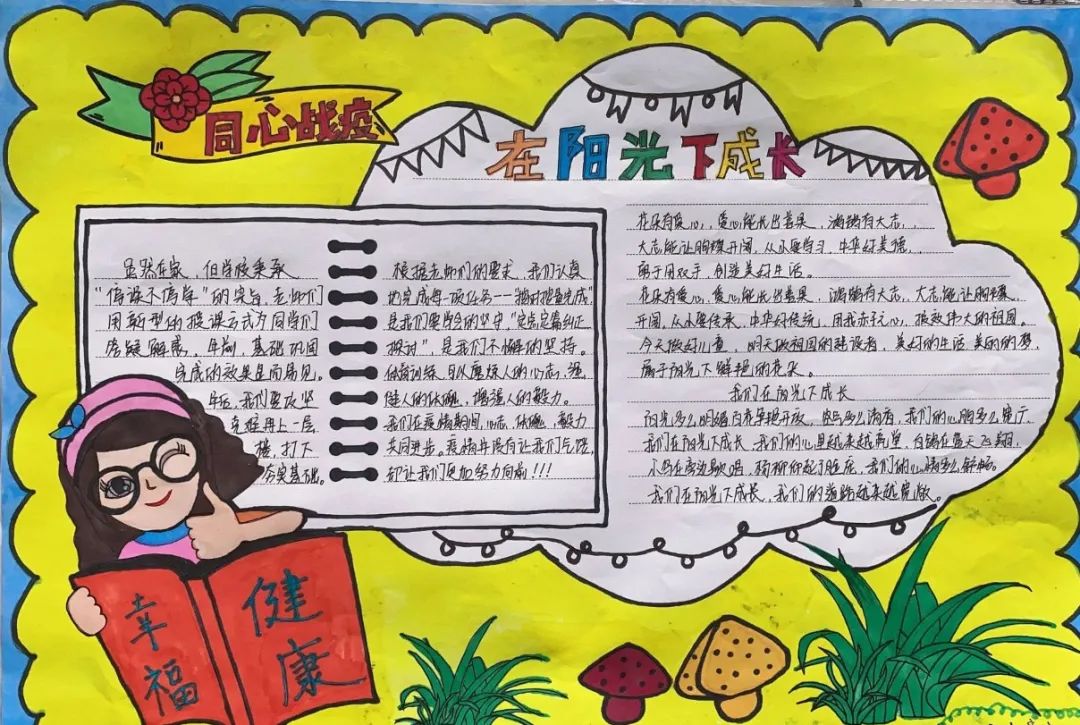 同心战疫
在阳光下成长
虽然在家，但学校秉承
“停课不停学”的宗旨，老师们
用新型的授课方式为同学们
答疑解惑，年前，基础巩固
完成的效果显而易见。
年后，我们要攻坚
克难再上一层
楼，打下
夯实基础。
根据老师们的要求，我们认真
的完成每一项任务——“按时按量完成”
是我们要当今的坚守，“定点定篇纠正
校对”，是我们不懈的坚持。
体育训练自从磨炼人的心志，强
健人的体魄，增强人的毅力。
我们在疫情期间，心志，体魄，毅力
共同进步。疫情并没有让我们气馁，
却让我们更加努力向前！！！
花朵有爱心，爱心能长出善果，鸿鹄有大志，
大志能让胸襟开阔，从小要学习，中华好美德，
勤于用双手，创造美好生活。
花朵有爱心，爱心能长出善果，鸿鹄有大志，大志能让胸襟
开阔。从小要传承，中华好传统，用我赤子心，报效伟大的祖国。
今天做好儿童，明天做祖国的建设者，美好的生活美的的梦，
属于阳光下鲜艳的花朵。
我们在阳光下成长
阳光多么明媚百花争艳开放，我们的心胸多么宽广
我们在阳光下成长，我们的心里越来越亮堂，白鸽在蓝天飞翔，
小鸟在旁边歌唱，杨柳仰起了脸庞，我们的心情多么舒畅。
我们在阳光下成长，我们的道路越来越宽敞。
幸福
健康